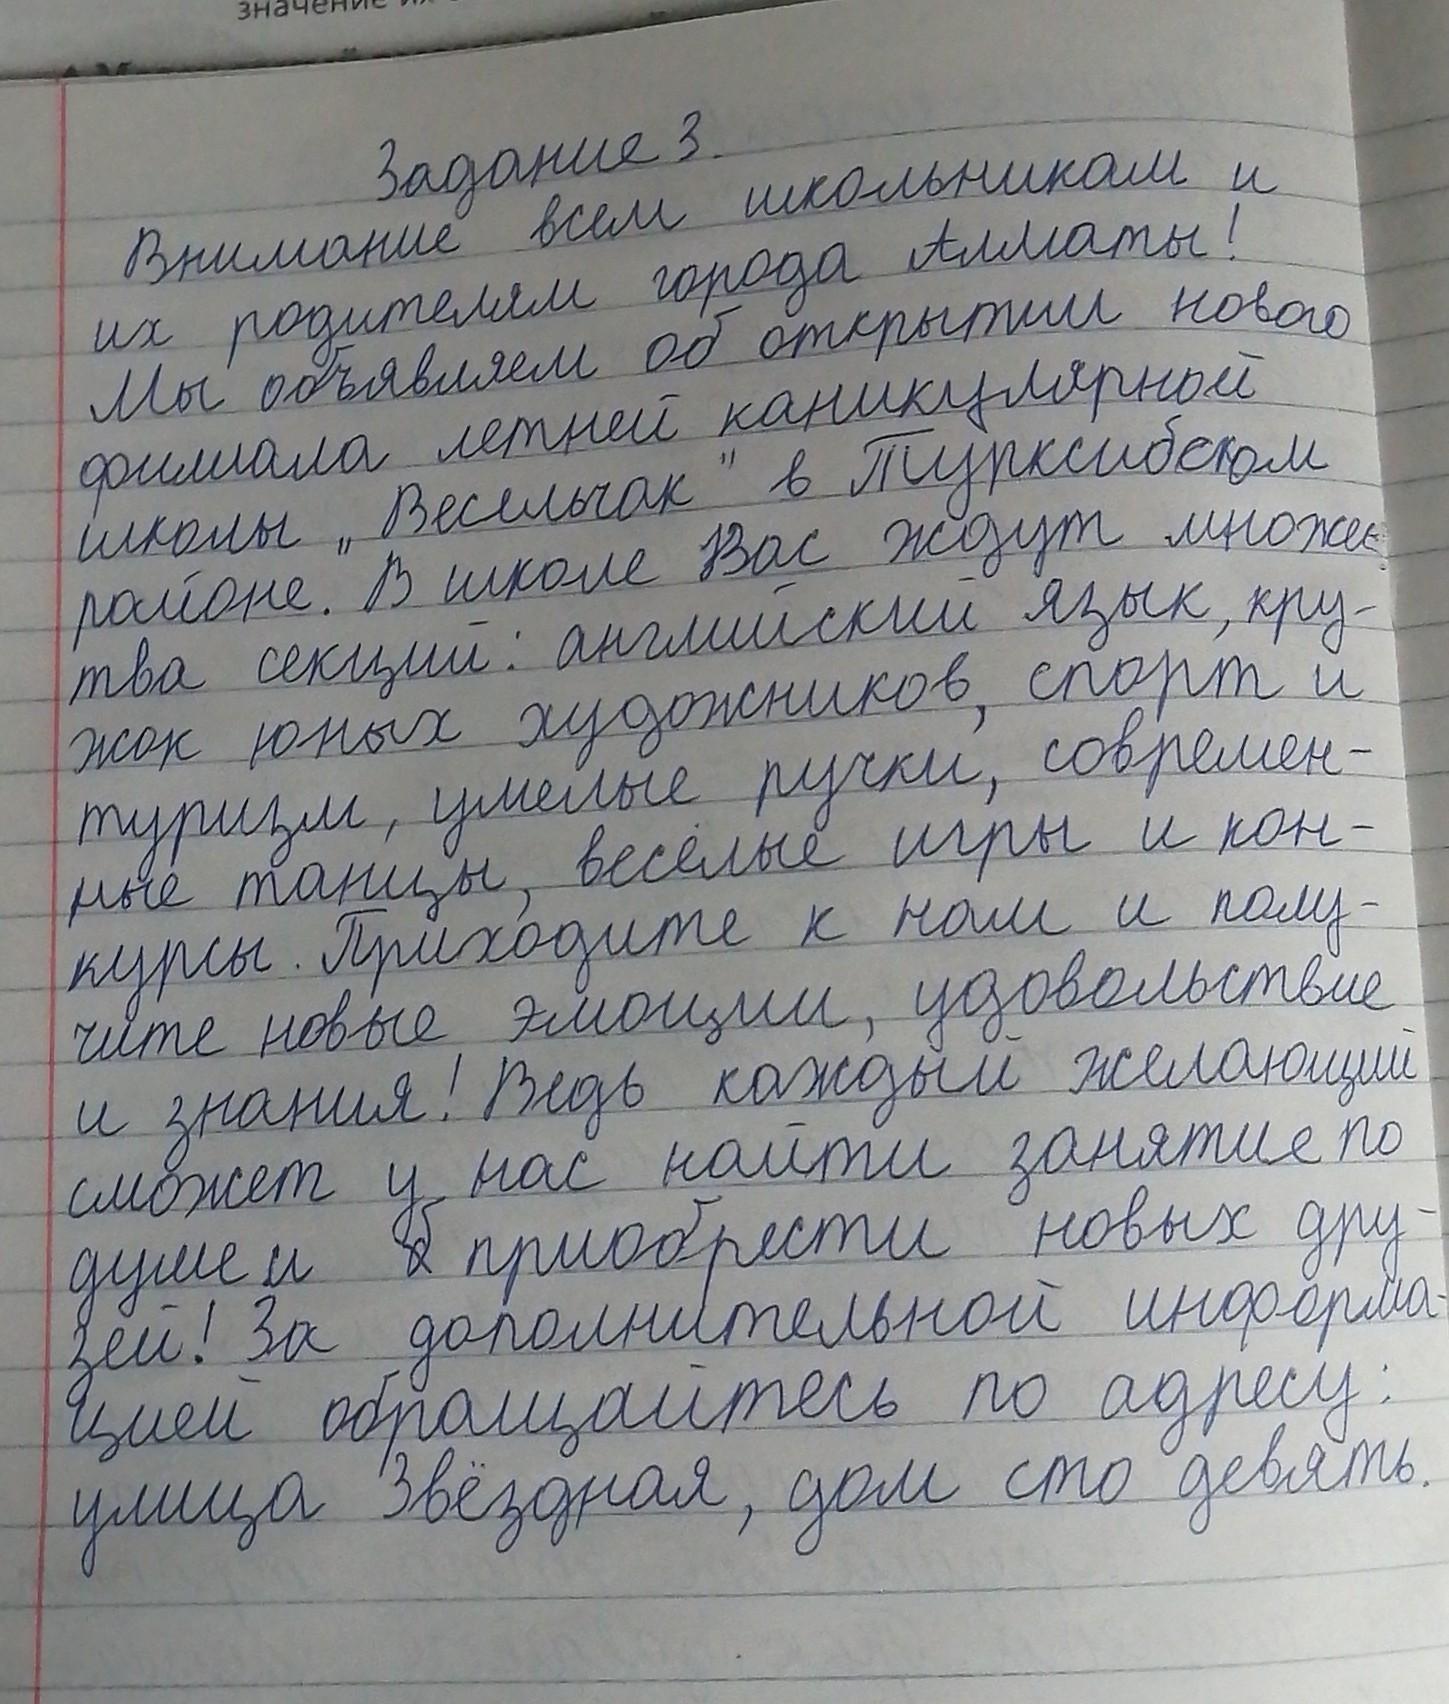 значение их
Задание 3.
Внимание всем школьникам и
их родителям города Алматы!
Мы объявляем об открытии нового
филиала летней каникулярной
школы „Весельчак" в Турксибском
районе. В школе Вас ждут множес
тва секций: английский язык, кру-
жок юных художников, спорт и
туризм, умелые ручки, современ-
ные танцы, весёлые игры и кон-
курсы. Приходите к нам и полу-
чите новые эмоции, удовольствие
и знания! Ведь каждый желающий
сможет у нас найти занятие по
душе и приобрести новых дру-
зей! За дополнительной информа-
цией обращайтесь по адресу:
улица Звёздная, дом сто девять.